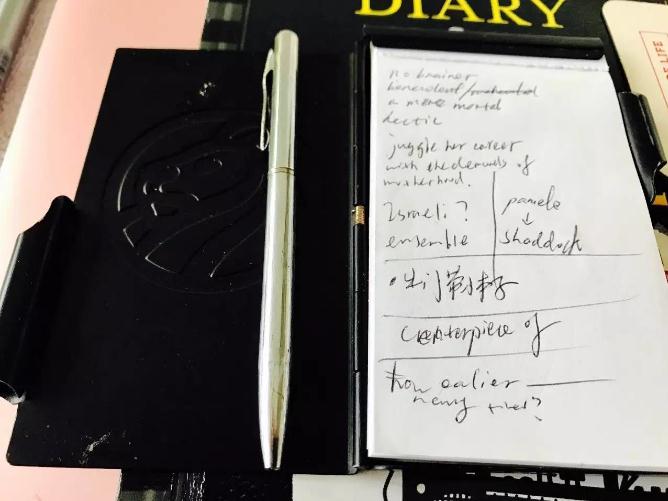 DIARY
OF LIFE
no brainer
benevolent/
a mere mortal
dectic
juggle her career
with the demands of
motherhood.
Israeli?
ensemble
pamelo
↓
shaddock
centerpiece of
how earlier